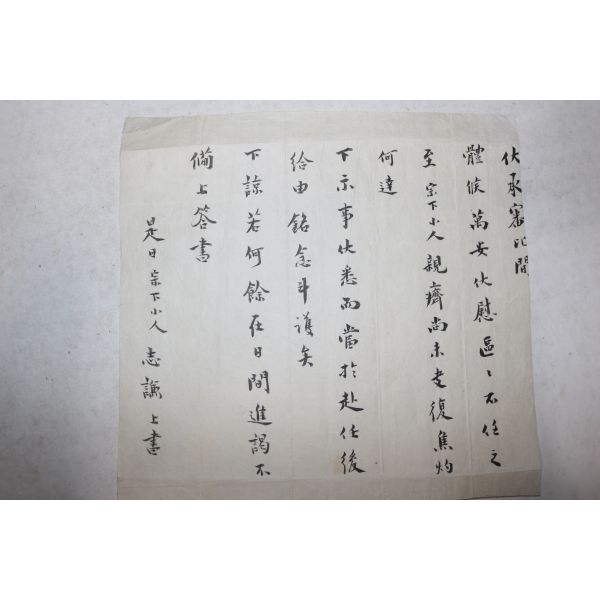 伏承審此間
體候萬安伏慰區〻不任之
至宗下小人親癠尚未支復焦灼
何達
下示事伏悉而當於赴任後
給由銘念斗護矣
下諒若何餘在日間進謁不
備上答書
是日宗下小人志謙上書